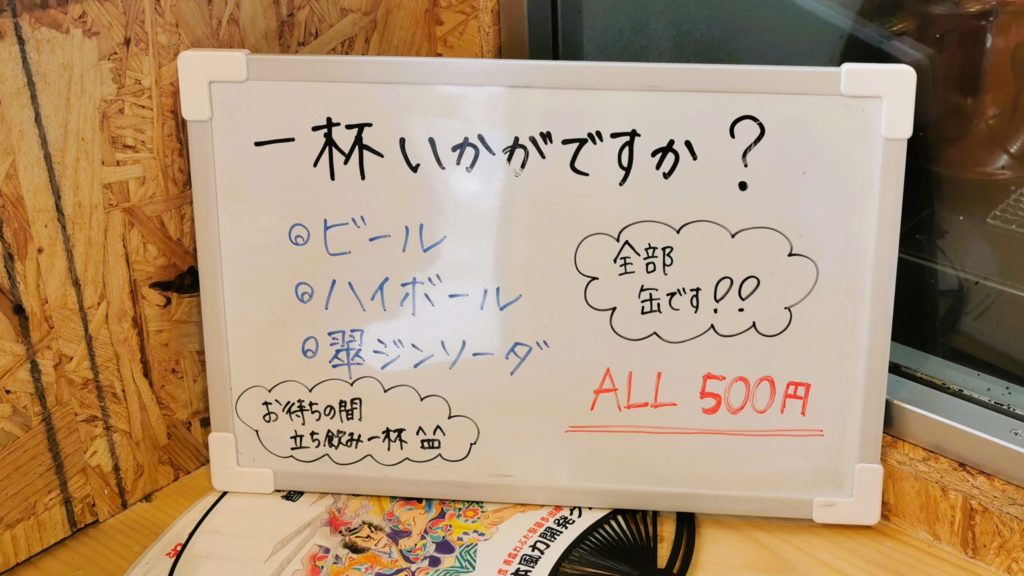 一杯いかがですか？
◎ビール
◎ハイボール
◎翠ジンソーダ
全部
缶です!!
ALL 500円
お待ちの間
立ち飲み一杯 ^^
本風力開発